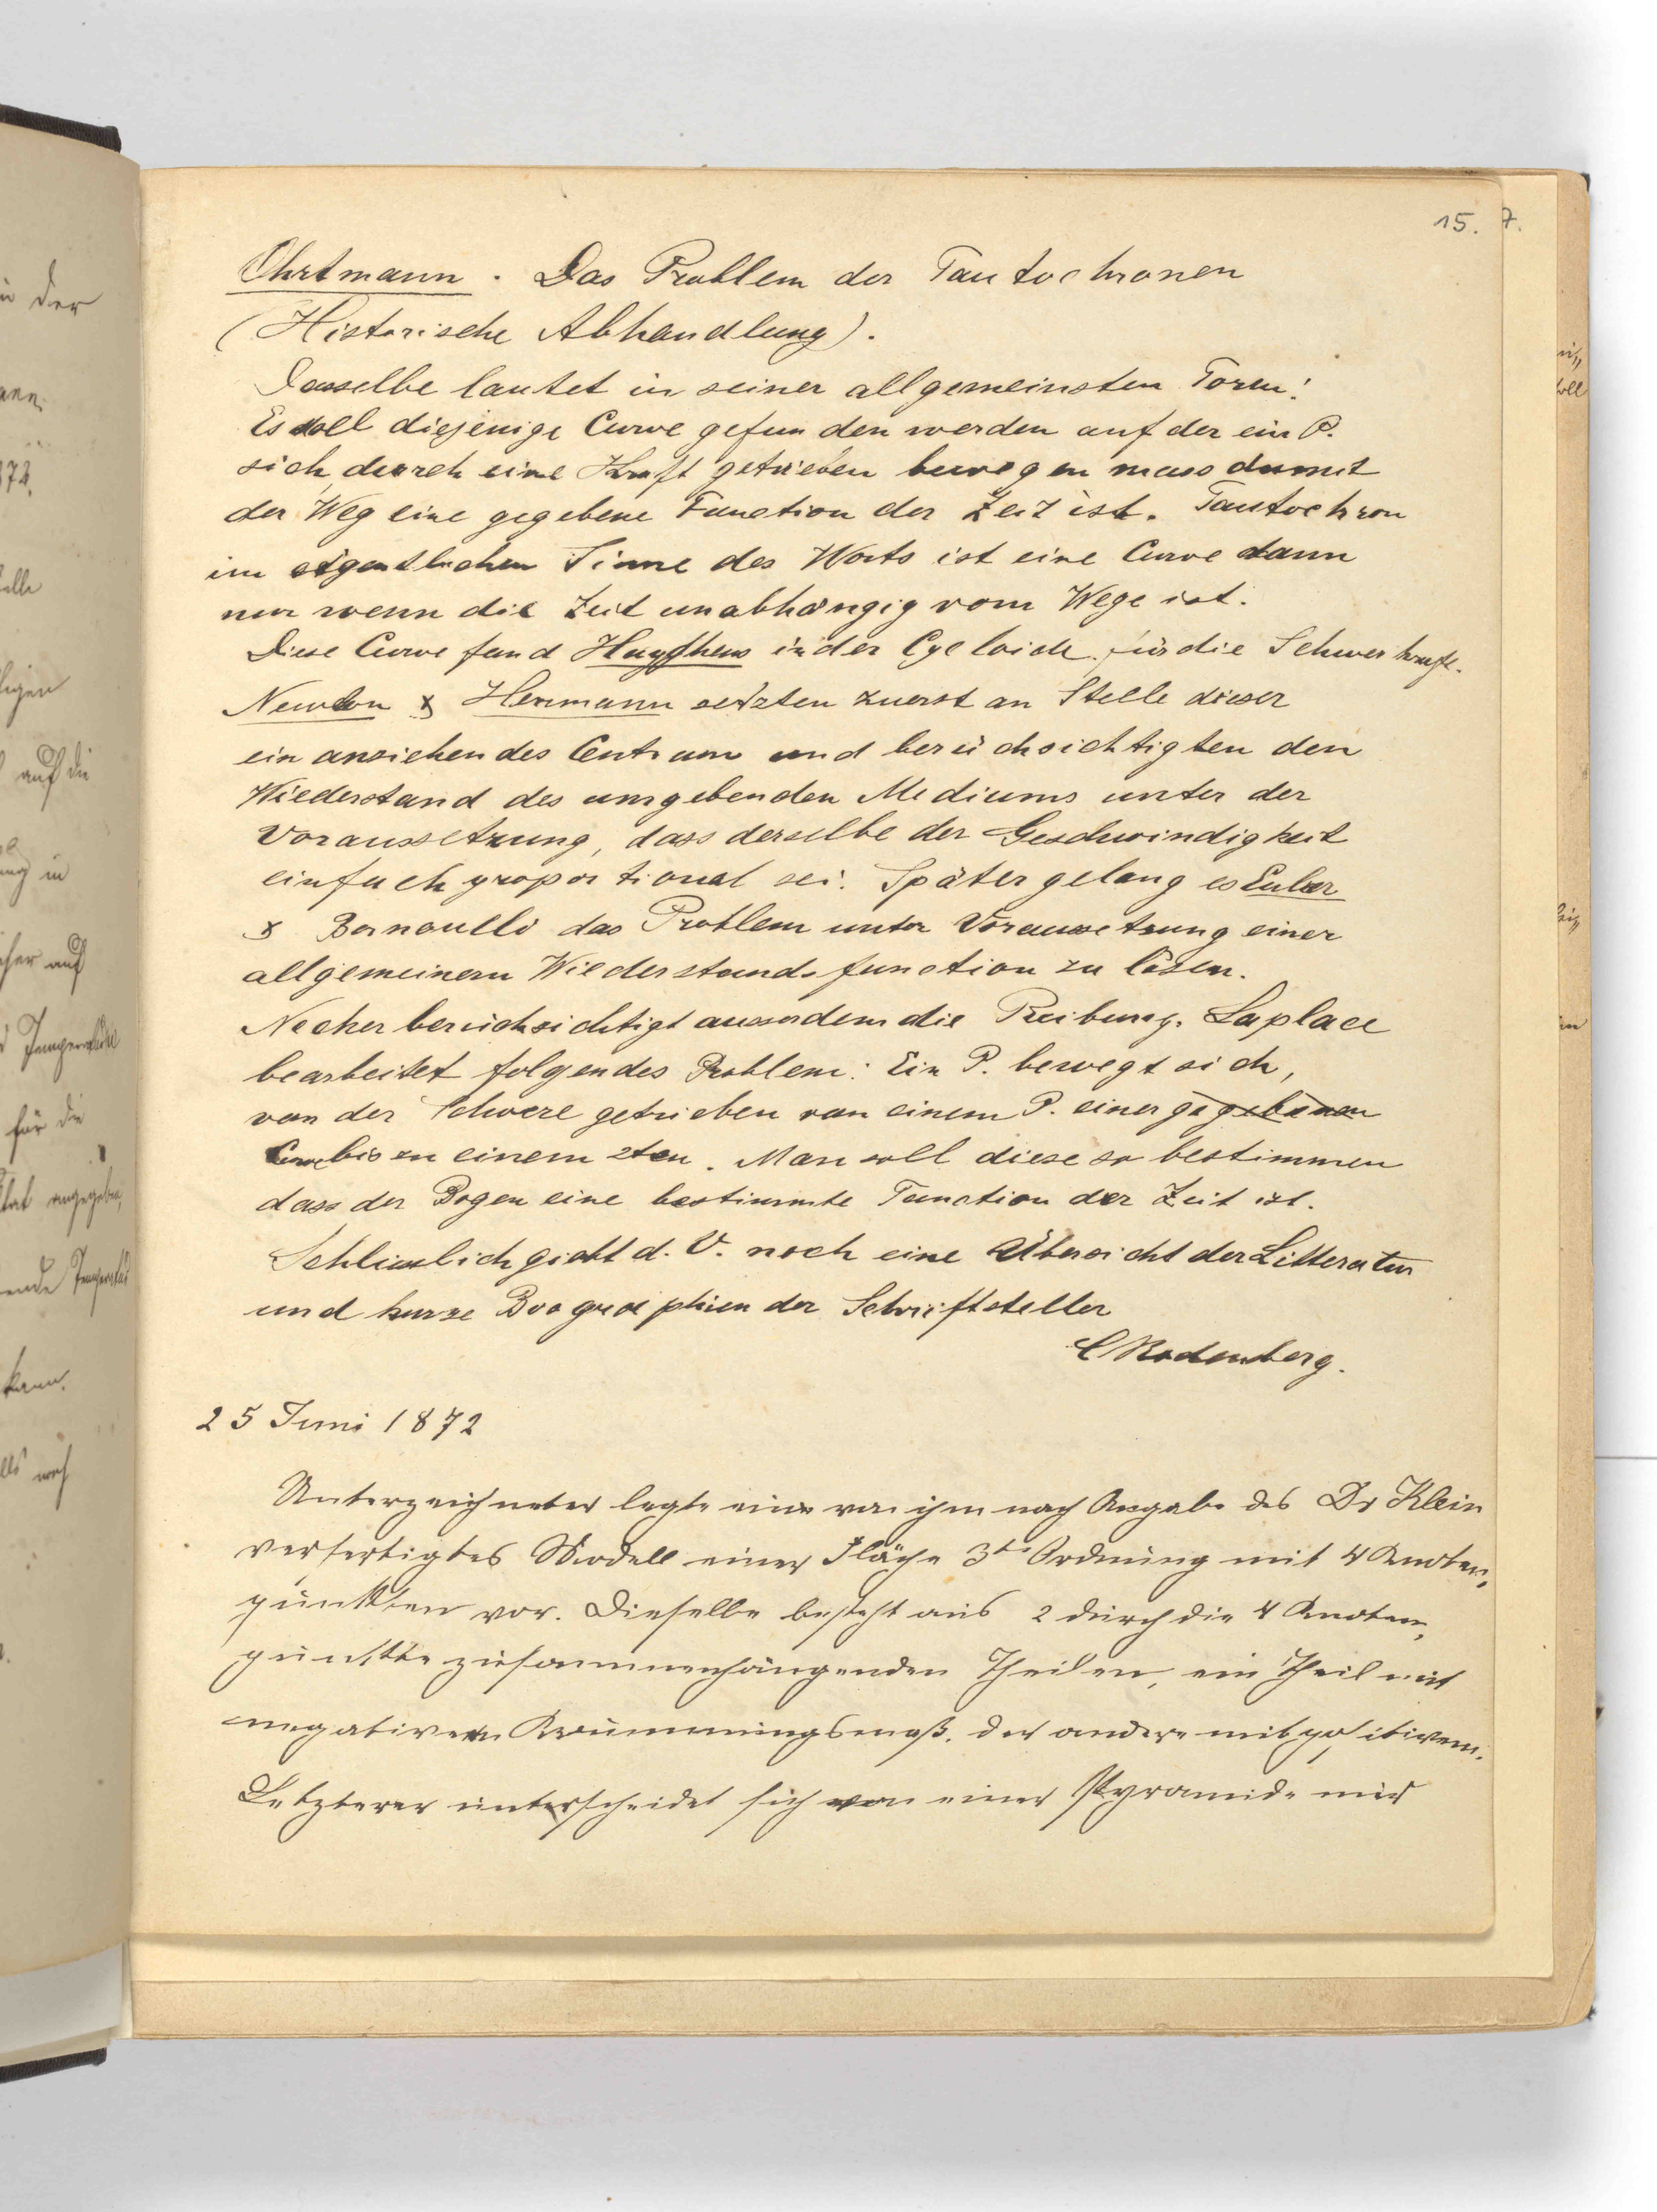 15. 7.
Ohrtmann. Das Problem der Tautochronen
(Historische Abhandlung).
Dasselbe lautet in seiner allgemeinsten Form:
Es soll diejenige Curve gefunden werden auf der ein P.
sich durch eine Kraft getrieben bewegen muss damit
der Weg eine gegebene Function der Zeit ist. Tautochron
im eigentlichen Sinne des Worts ist eine Curve dann
nur wenn die Zeit unabhängig vom Wege ist.
Diese Curve fand Huyghens in der Cycloide für die Schwerkraft.
Newton & Herrmann setzten zuerst an Stelle dieser
ein anziehendes Centrum und berücksichtigten den
Wiederstand des umgebenden Mediums unter der
Voraussetzung, dass derselbe der Geschwindigkeit
einfach proportional sei. Später gelang es Euler
& Bernoulli das Problem unter Voraussetzung einer
allgemeinern Wiederstandsfunction zu lösen.
Necker berücksichtigt ausserdem die Reibung. Laplace
bearbeitet folgendes Problem: Ein P. bewegt sich,
von der Schwere getrieben von einem P. einer gegebenen
Curve bis zu einem 2ten. Man soll diese so bestimmen
dass der Bogen eine bestimmte Function der Zeit ist.
Schliesslich giebt d. V. noch eine Übersicht der Litteratur
und kurze Biographien der Schriftsteller
C Rodenberg.
25 Juni 1872
Unterzeichneter legte eine von ihm nach Angabe des Dr Klein
verfertigtes Modell einer Fläche 3ter Ordnung mit 4 Knoten-
punkten vor. Dieselbe besteht aus 2 durch die 4 Knoten-
punkte zusammenhängenden Theilen, ein Theil mit
negativem Krümmungsmaß, der andere mit positivem.
Letzterer unterscheidet sich von einer Pyramide nur